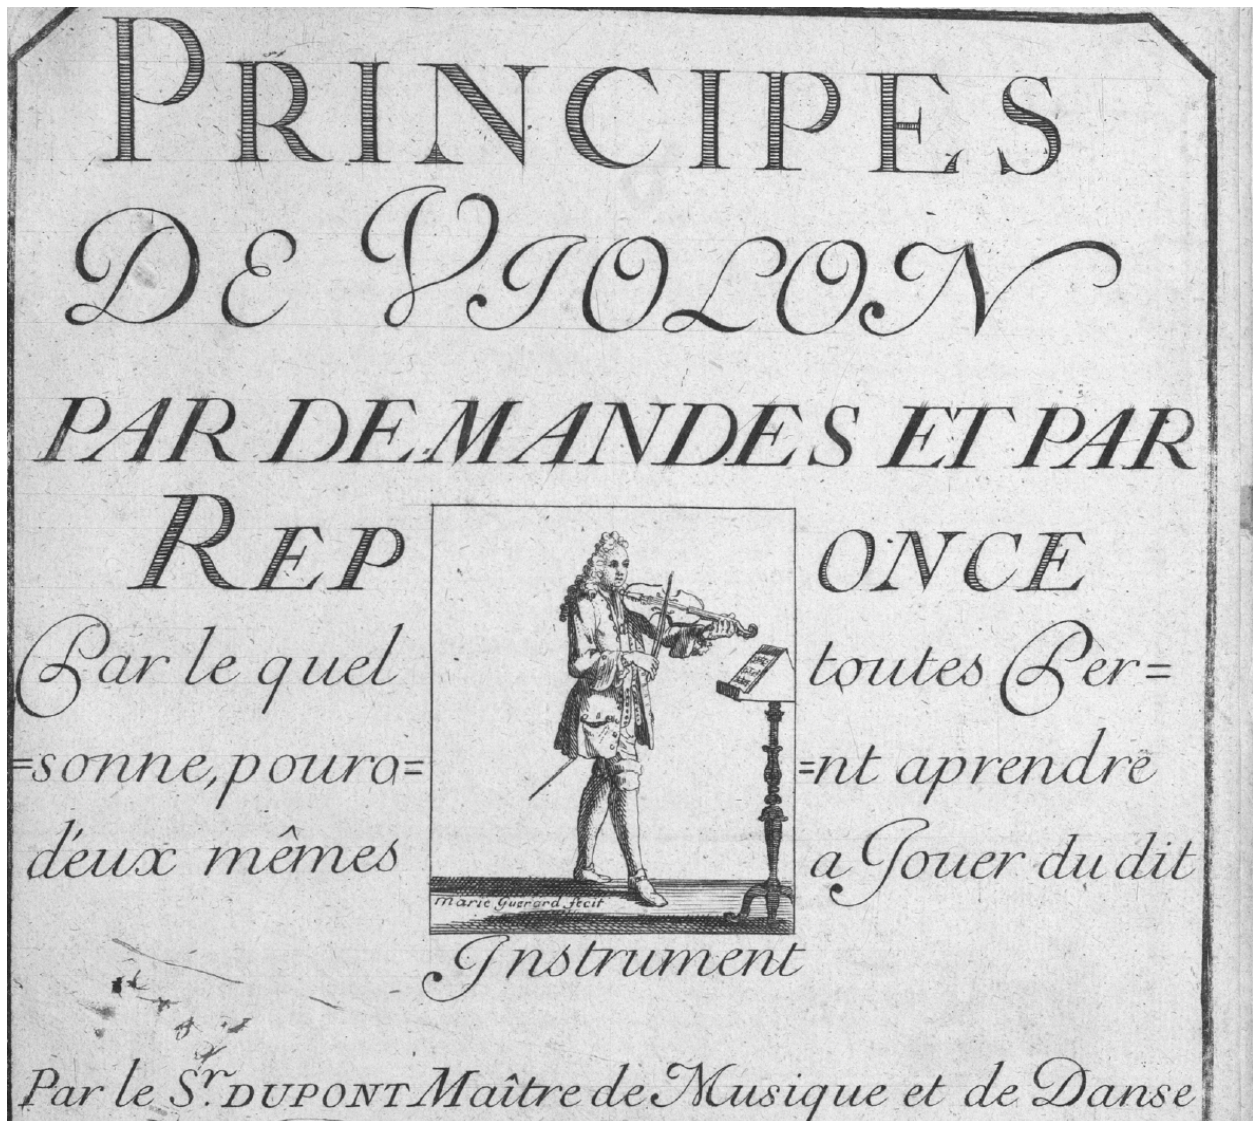 PRINCIPES
DE VIOLON
PAR DEMANDES ET PAR
REPONCE
Par le quel toutes Per=
=sonne, pouro= =nt aprendre
d'eux mêmes a Jouer du dit
Marie Guerard fecit
Instrument
Par le Sr. DUPONT Maître de Musique et de Danse